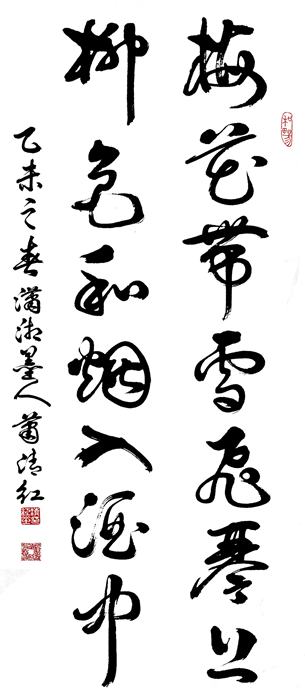 梅花带雪飛琴上
柳色和烟入酒中
乙未之春瀟湘墨人蕭清红